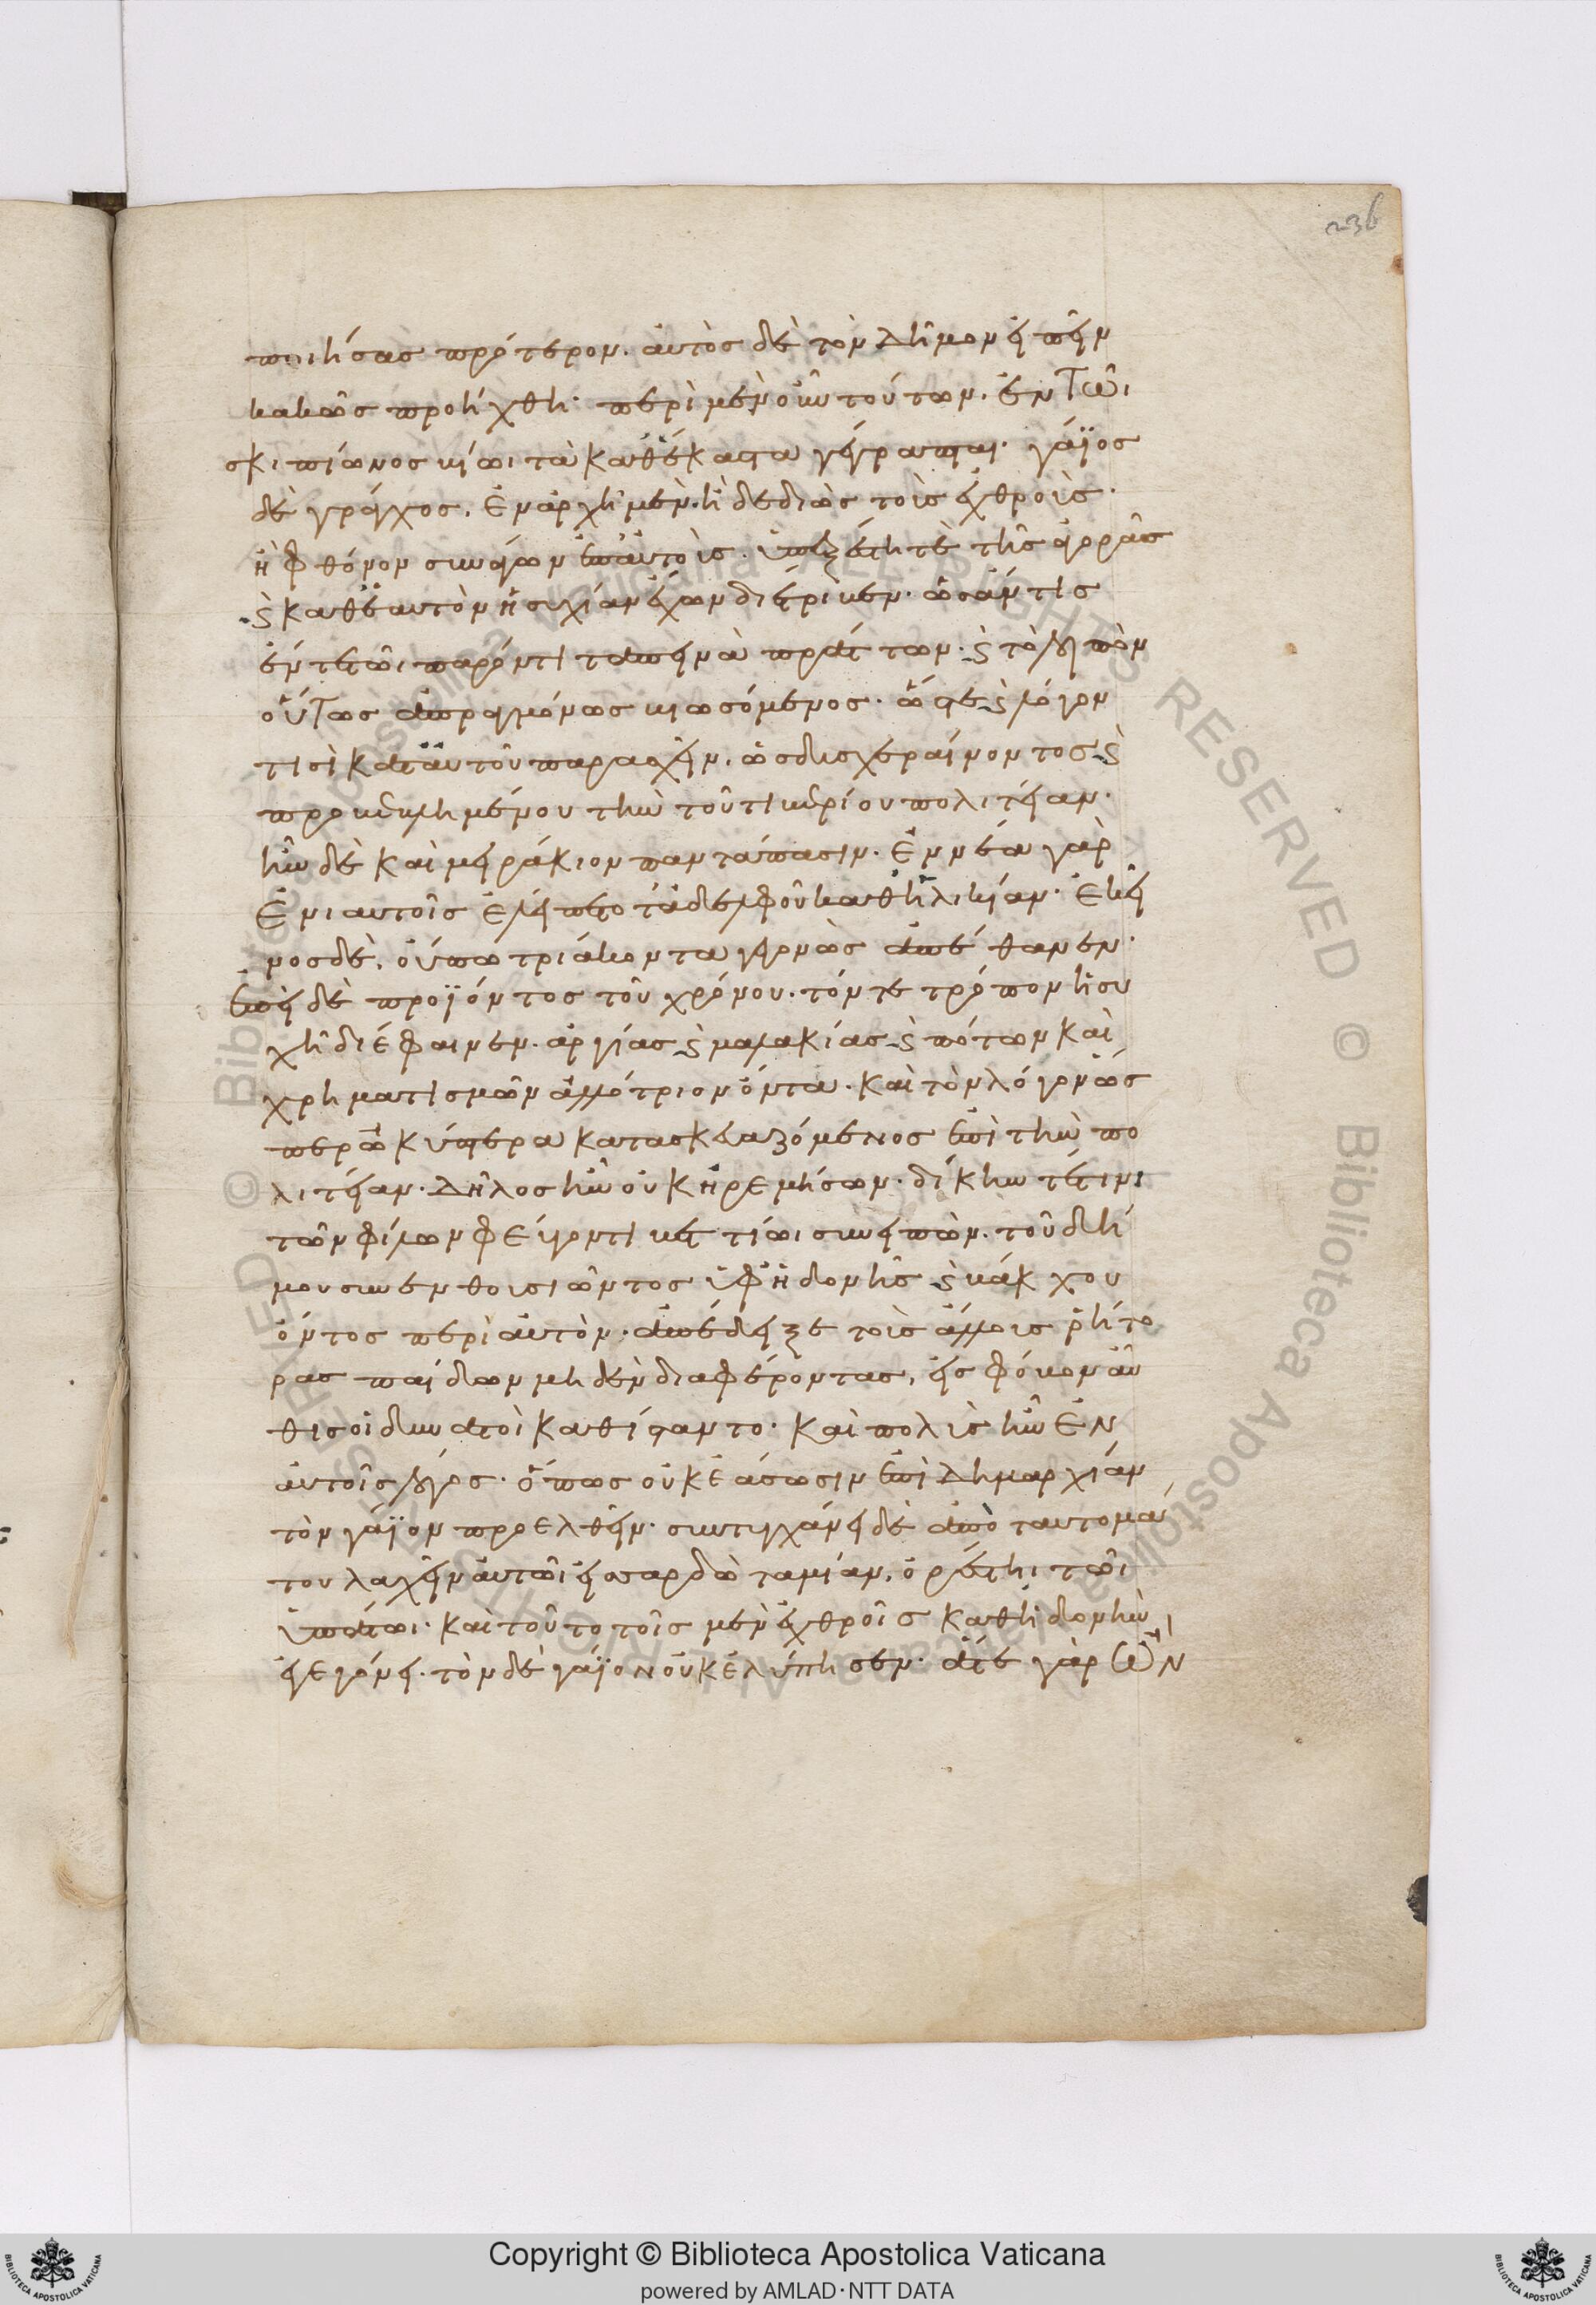 ποιήσας πρότερον. αὐτὸς δὲ τὸν δῆμον εἰπεῖν
κακῶς προήχθη· περὶ μὲν οὖν τούτων. ἐν τῶι
σκιπίωνος βίωι τὰ καθέκαστα γέγραπται· γάϊος
δὲ γράγχος. ἐν ἀρχῆ μὲν. ἢ δεδιὼς τοὺς ἐχθροὺς·
ἢ φθόνον συνάγων ἐπ' αὐτοὺς. ὑπεξέστη τὲ τῆς ἀγορᾶς
καὶ καθ' ἑαυτὸν ἡσυχίαν ἔχων διέτριβεν. ὡς ἄν τις
ἔν τε τῶι παρόντι ταπεινὰ πράττων. καὶ τὸ λοιπὸν
οὕτως ἀπραγμόνως βιωσόμενος. ὥστε καὶ λόγον
τισὶ κατ' αὐτοῦ παρασχεῖν. ὡς δυσχεραίνοντος καὶ
προβεβλημένου τὴν τοῦ τιβερίου πολιτείαν.
ἦν δὲ καὶ μειράκιον παντάπασιν. ἐννέα γὰρ
ἐνιαυτοῖς ἐλείπετο τἀδελφοῦ καθ' ἡλικίαν. ἐκεῖ
νος δὲ. οὔπω τριάκοντα γεγονὼς ἀπέθανεν·
ἐπεὶ δὲ προϊόντος τοῦ χρόνου. τόν τε τρόπον ἡσυ
χῆ διέφαινεν. ἀργίας καὶ μαλακίας καὶ πότων καὶ
χρηματισμῶν ἀλλότριον ὄντα. καὶ τὸν λόγον ὥσ
περ ὠκύπτερα κατασκευαζόμενος ἐπὶ τὴν πο
λιτείαν. δῆλος ἦν οὐκ ἠρεμήσων. δίκην τέ τινι
τῶν φίλων φεύγοντι βεττίωι συνειπὼν. τοῦ δή
μου συνενθουσιῶντος ὑφ' ἡδονῆς καὶ βακχου
όντος περὶ αὐτὸν. ἀπέδειξε τοὺς ἄλλους ῥήτο
ρας παίδων μηδὲν διαφέροντας. εἰς φόβον αὖ
θις οἱ δυνατοὶ καθίσταντο. καὶ πολὺς ἦν ἐν
αὐτοῖς λόγος. ὅπως οὐκ ἐάσωσιν ἐπὶ δημαρχίαν
τὸν γάϊον προελθεῖν. συντυγχάνει δὲ ἀπὸ ταυτομά
του λαχεῖν αὐτῶι εἰς σαρδὼ ταμίαν. ὀρέστηι τῶι
ὑπάτωι. καὶ τοῦτο τοῖς μὲν ἐχθροῖς καθ' ἡδονὴν
ἐγεγόνει. τὸν δὲ γάϊον οὐκ ἐλύπησεν. ἅτε γὰρ ὢν
236
Copyright © Biblioteca Apostolica Vaticana
powered by AMLAD·NTT DATA